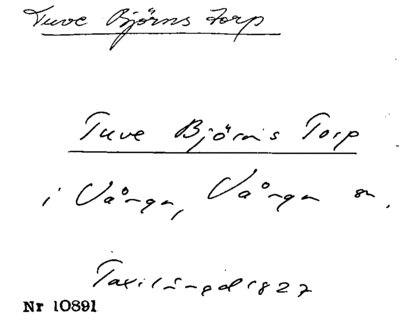 Tuve Björns Torp
Tuve Björns Torp
i Vånga, Vånga sn.
Taxil­ängd 1827
Nr 10891